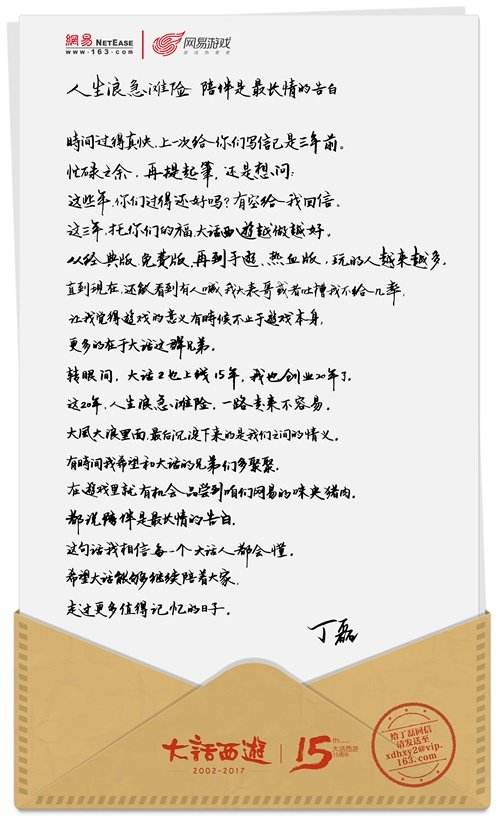 網易 NETEASE
www.163.com
网易游戏
游戏热爱者
人生浪急滩险 陪伴是最长情的告白
時间过得真快,上一次给你们写信已是三年前。
忙碌之余,再提起筆,还是想问:
这些年,你们过得还好吗?有空给我回信。
这三年,托你们的福,大话西遊越做越好。
从经典版、免费版,再到手遊、热血版,玩的人越来越多。
直到现在,还能看到有人喊我大表哥或者吐槽我不给几率,
让我觉得遊戏的意义有時候不止于遊戏本身,
更多的在于大话这群兄弟。
转眼间,大话2也上线15年,我也创业20年了。
这20年,人生浪急滩险,一路走来不容易。
大風大浪里面,最后沉淀下来的是我们之间的情义。
有時间我希望和大话的兄弟们多聚聚。
在遊戏里就有机会品尝到咱们网易的味央猪肉。
都说陪伴是最长情的告白,
这句话我相信每一个大话人都会懂。
希望大话能够继续陪着大家,
走过更多值得记忆的日子。
丁磊
大话西遊
2002-2017
15th
大话西游
15周年
给丁磊回信
请发送至
xdhxy2@vip-
163.com